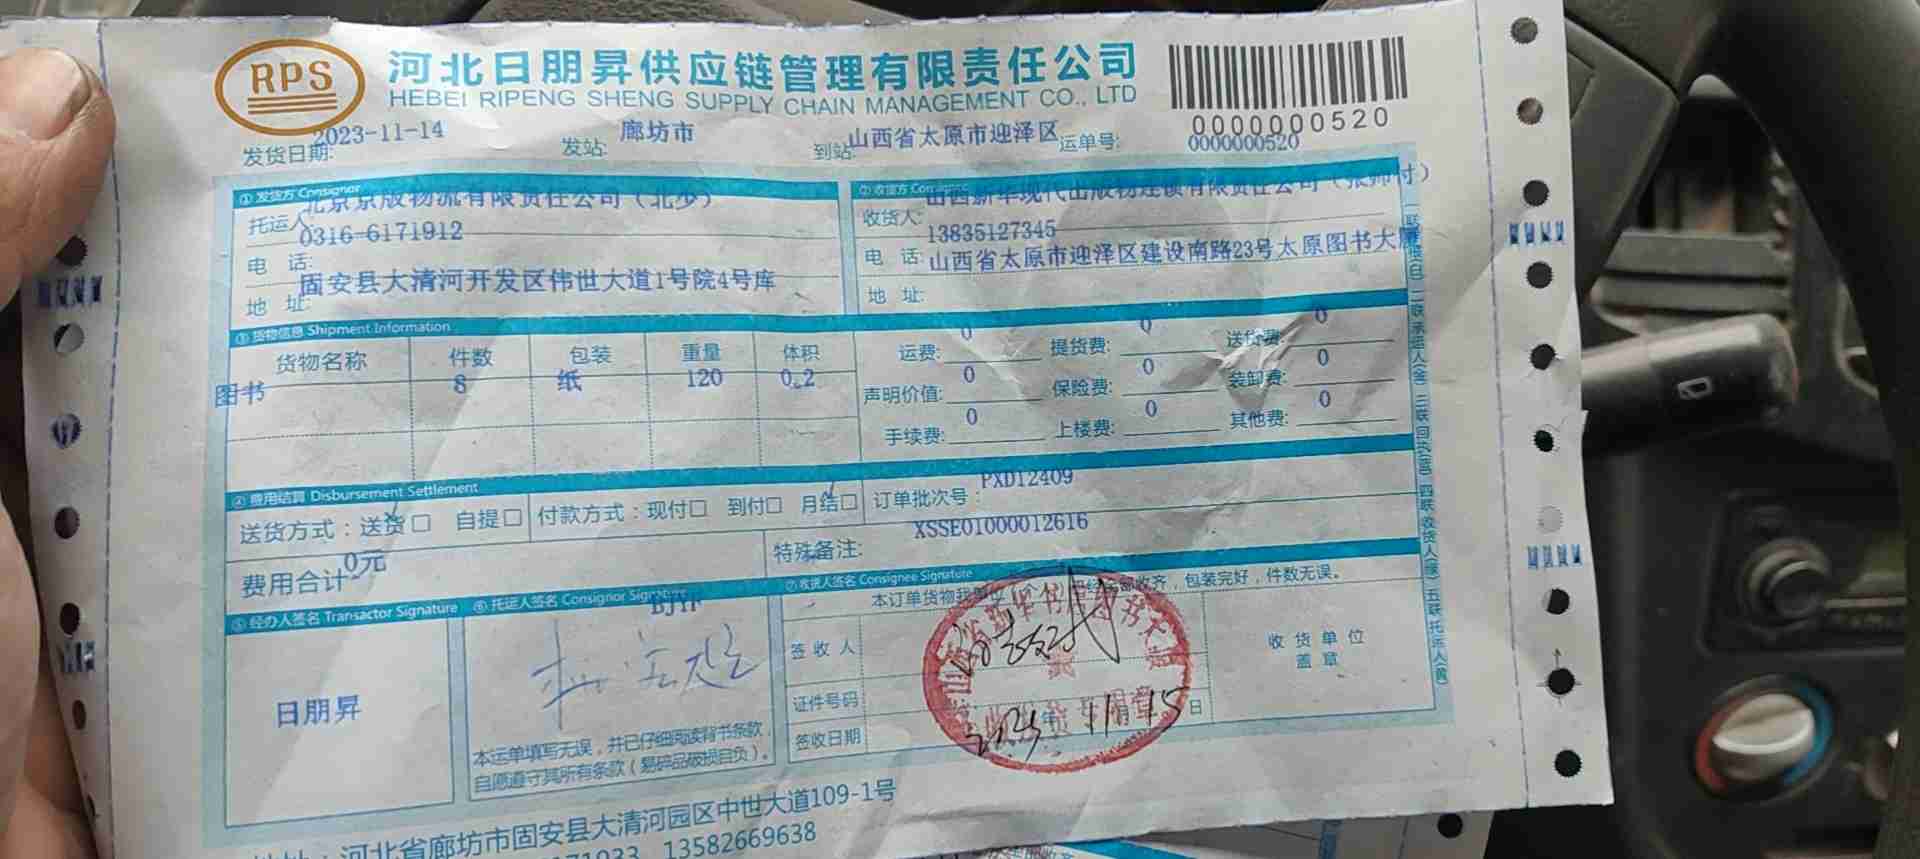 RPS
河北日朋昇供应链管理有限责任公司
HEBEI RIPENG SHENG SUPPLY CHAIN MANAGEMENT CO., LTD
0000000520
发货日期: 2023-11-14 发站: 廊坊市 到站: 山西省太原市迎泽区 运单号: 0000000520
① 发货方 Consignor
托运人: 北京京版物流有限责任公司（北少）
电 话: 0316-6171912
地 址: 固安县大清河开发区伟世大道1号院4号库
② 收货方 Consignee
收货人: 山西新华现代出版物连锁有限责任公司
电 话: 13835127345
地 址: 山西省太原市迎泽区建设南路23号太原图书大厦
③ 货物信息 Shipment Information
货物名称 件数 包装 重量 体积
图书 8 纸 120 0.2
运费: 0 提货费: 0 送货费: 0
声明价值: 0 保险费: 0 装卸费: 0
手续费: 0 上楼费: 0 其他费: 0
④ 费用结算 Disbursement Settlement
送货方式：送货□ 自提□ 付款方式：现付□ 到付□ 月结□ 订单批次号： PXD12409
费用合计 0元 特殊备注: XSSE01000012616
⑤ 经办人签名 Transactor Signature
日朋昇
⑥ 托运人签名 Consignor Signature
本运单填写无误，并已仔细阅读背书条款，
自愿遵守其所有条款（易碎品破损自负）。
⑦ 收货人签名 Consignee Signature
本订单货物我单位已经全部收齐，包装完好，件数无误。
签收人
证件号码
签收日期 2023年11月15日
收货单位
盖章
河北省廊坊市固安县大清河园区中世大道109-1号
13582669638